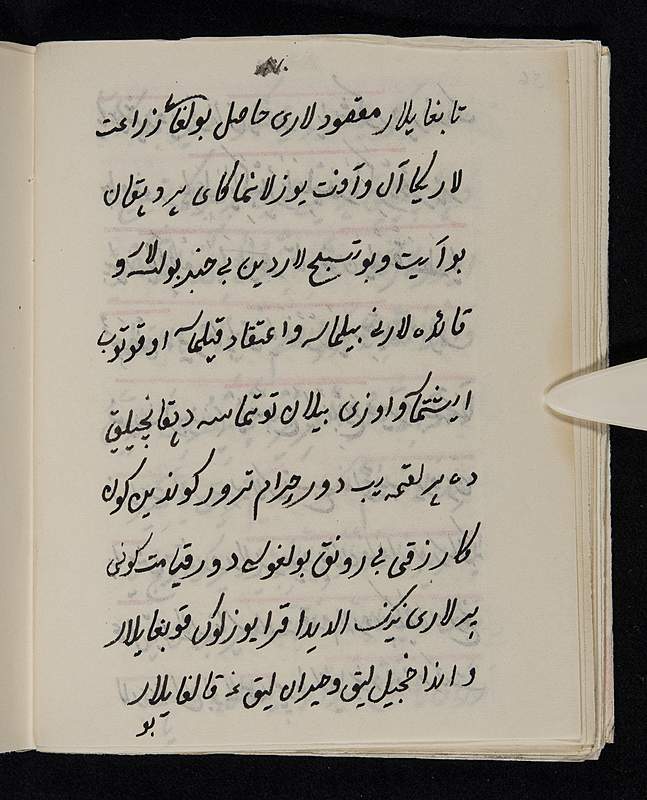 تابغایلار مقصودلاری حاصل بولغای زراعت
لاریکا آل و آفت یوزلانماکای هر دهقان
بو آیت و بو تسبیح لاردین بی خبر بولسلار و
قائده لارنی بیلماسه و اعتقاد قیلماسه اوقوتوب
ایشتماسه و اوزی بیلان توتماسه دهقانچیلیق
ده هر لقمه یب دور حرام ترور کوندین کون
کا رزقی بی رونق بولغوسی دور قیامت کونی
پیرلاری نینک الدیدا قرا یوزلوک قوبغایلار
و اندا خجیل لیق و حیران لیق غه قالغایلار
بو